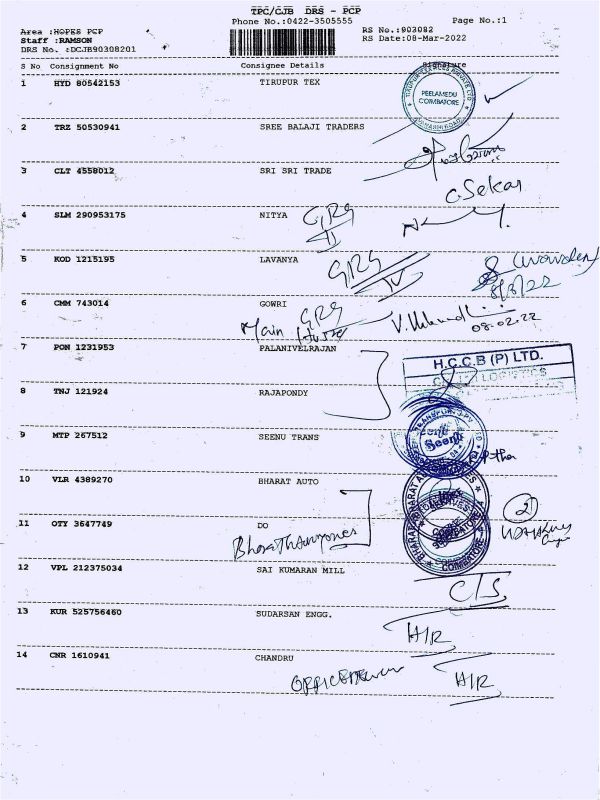 TPC/CJB DRS - PCP
Phone No.:0422-3505555 Page No.:1
Area :HOPES PCP RS No.:903082
Staff :RAMSON RS Date:08-Mar-2022
DRS No. :DCJB90308201
S No Consignment No Consignee Details Signature
1 HYD 80542153 TIRUPUR TEX
PEELAMEDU
COIMBATORE
2 TRZ 50530941 SREE BALAJI TRADERS
3 CLT 4558012 SRI SRI TRADE
C. Sekar
4 SLM 290953175 NITYA GRG
5 KOD 1215195 LAVANYA GRG IV
8/3/22
6 CMM 743014 GOWRI GRG
Main 08.02.22
7 PON 1231953 PALANIVELRAJAN
H.C.C.B (P) LTD.
8 TNJ 121924 RAJAPONDY
9 MTP 267512 SEENU TRANS
Seenu
10 VLR 4389270 BHARAT AUTO
11 OTY 3647749 DO
2
COIMBATORE
12 VPL 212375034 SAI KUMARAN MILL
C/S
13 KUR 525756460 SUDARSAN ENGG.
H/R
14 CNR 1610941 CHANDRU
H/R